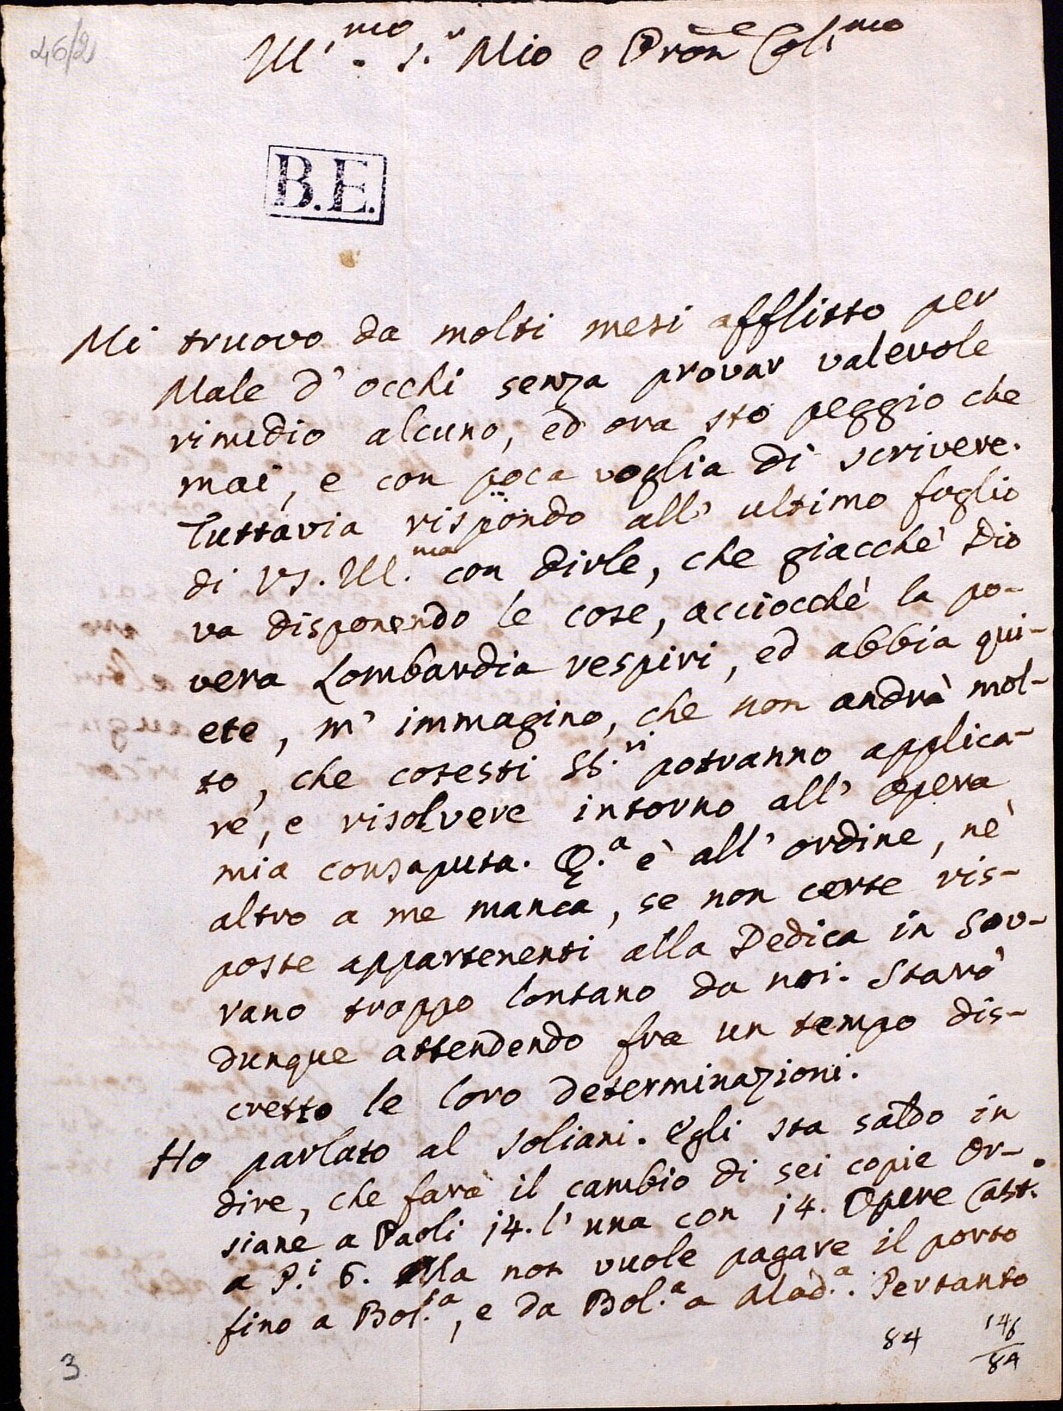 46/2
Ill.mo S.r Mio e Pron̄e Col.mo
B.E.
Mi truovo da molti mesi afflitto per
Male d' occhi senza provar valevole
rimedio alcuno, ed ora sto peggio che
mai, e con poca voglia di scrivere.
Tuttavia rispondo all' ultimo foglio
di VS. Ill.ma con dirle, che giacchè Dio
va disponendo le cose, acciocchè la po-
vera Lombardia respiri, ed abbia qui-
ete, m' immagino, che non andrà mol-
to, che cotesti SS.ri potranno applica-
re, e risolvere intorno all' Opera
mia consaputa. Q.a è all' ordine, nè
altro a me manca, se non certe ris-
poste appartenenti alla Dedica in Sov-
rano troppo lontano da noi. Starò
dunque attendendo fra un tempo dis-
cretto le loro determinazioni.
Ho parlato al Soliani. Egli sta saldo in
dire, che farà il cambio di sei copie Or-
siane a Paoli 14. l' una con 14. Opere Cast.
a P.i 6. Ma non vuole pagare il porto
fino a Bol.a, e da Bol.a a Mod.a. Pertanto
84
146
84
3